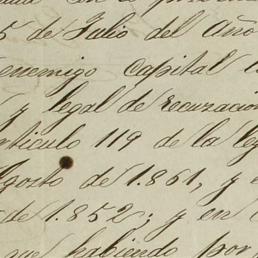 5 de Julio del Año
enemigo capital
y legal de recusación
artículo 119 de la ley
Agosto de 1.861, y e
de 1.852; y en
que habiendo por